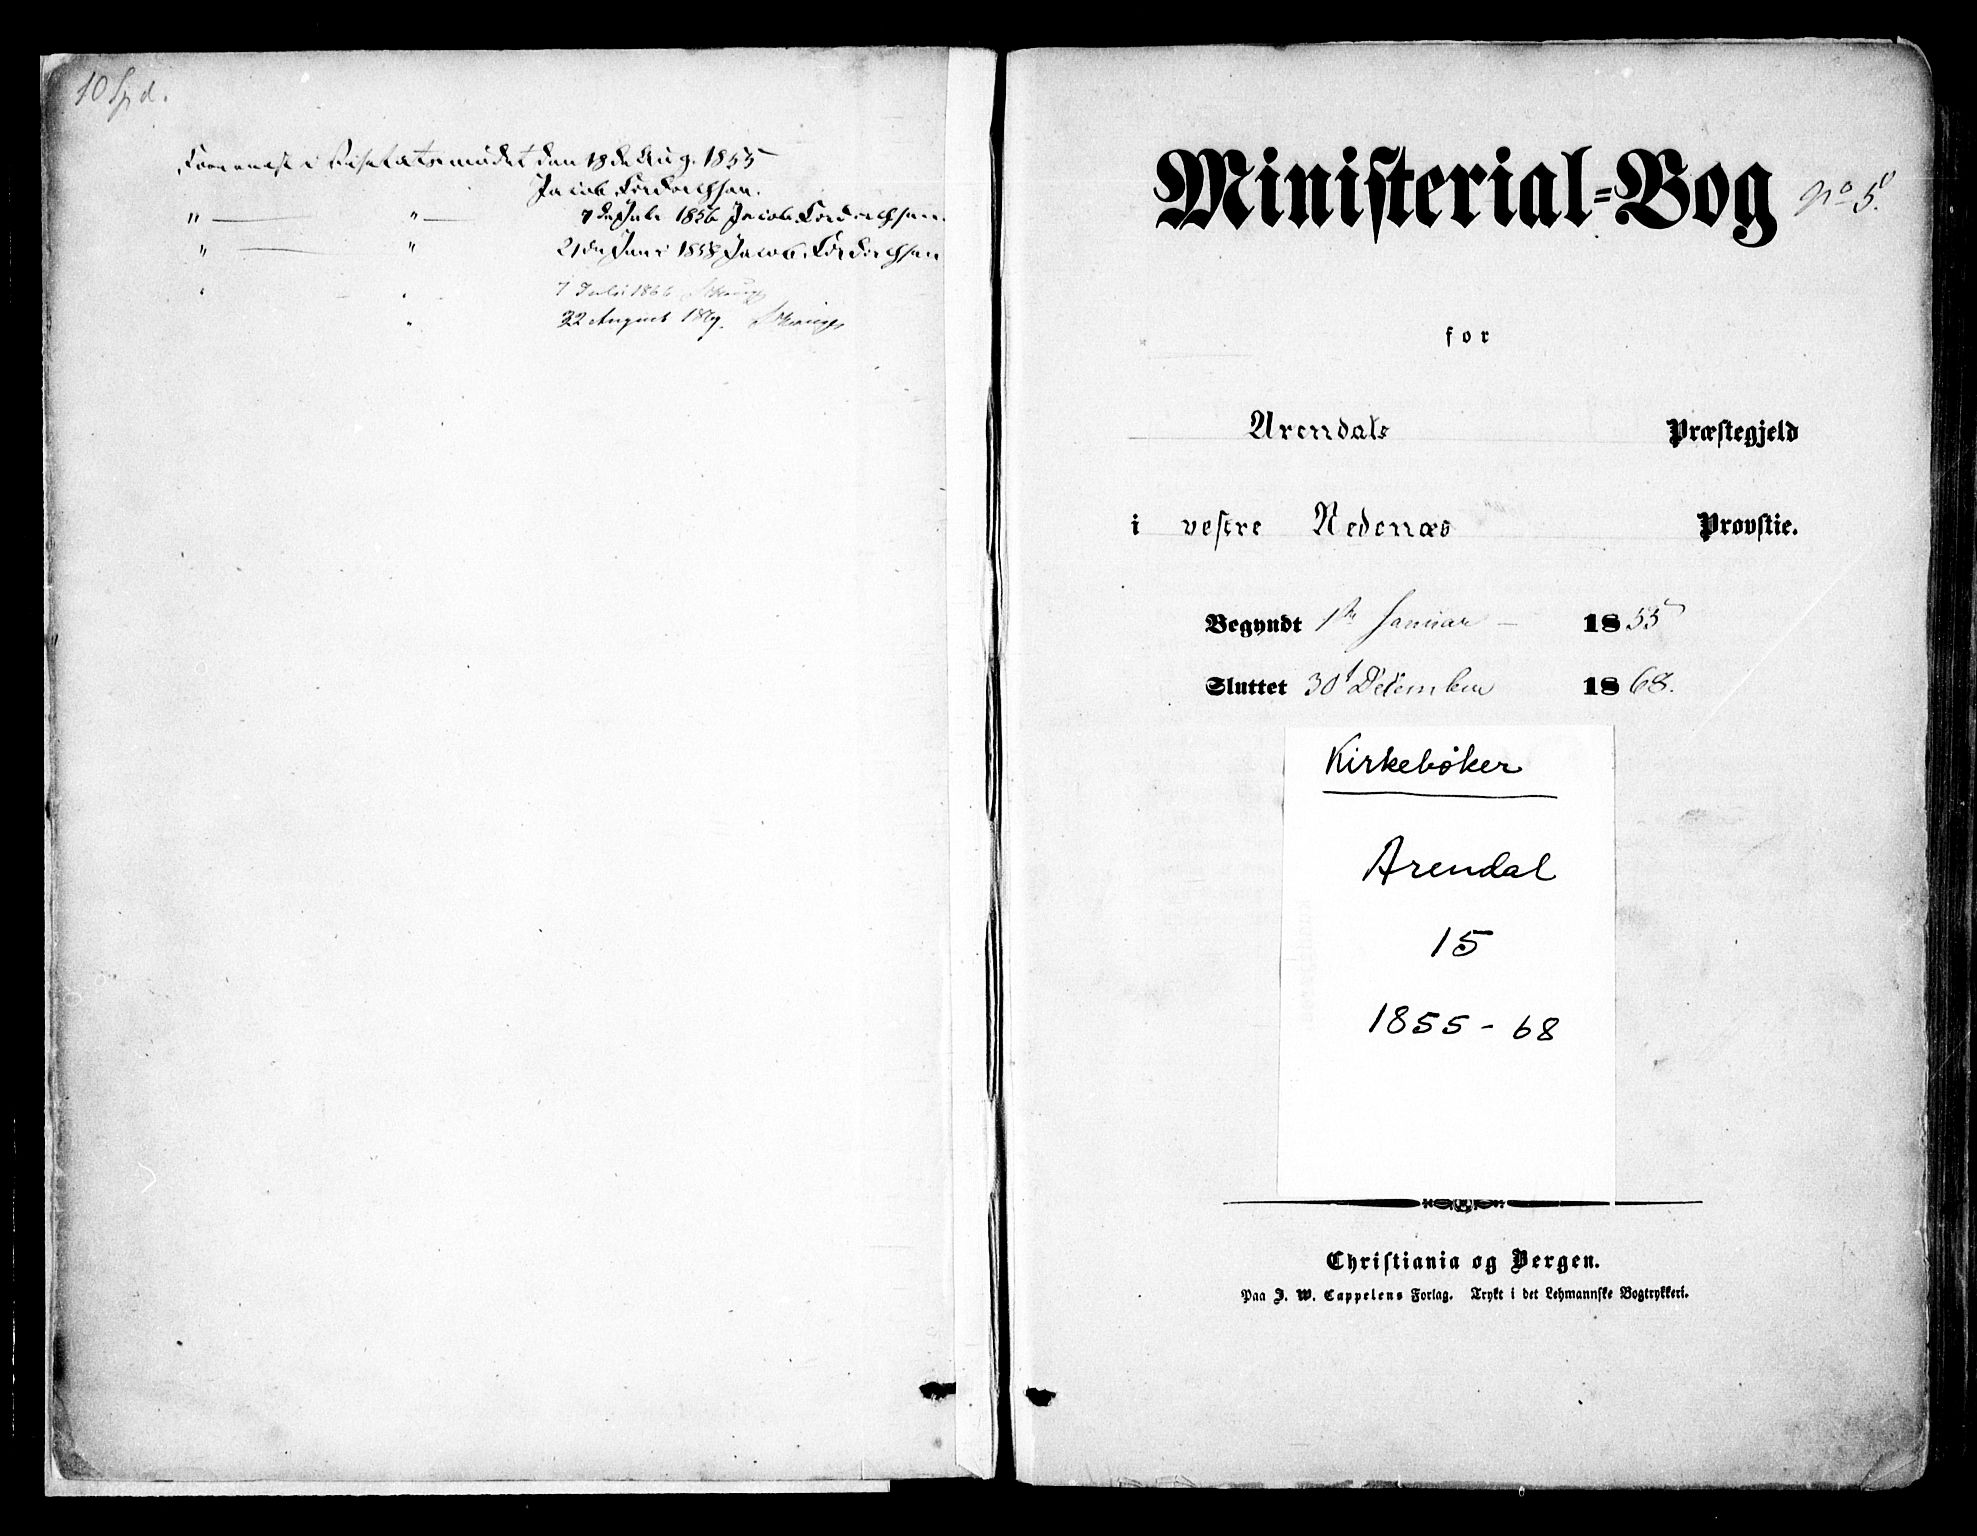 10 Spd.
i Visitatsmødet den 18de Aug. 1855
Jacob
" " 7de Juli 1856 Jacob
" " 21de Juni 1858 Jacob
7 Juli 1866
" 22 August 1869.
Ministerial-Bog No 5.
for
Arendals Præstegjeld
i vestre Nedenæs Provstie.
Begyndt 1ste Januar – 1855
Sluttet 30t December 1868.
Kirkebøker
Arendal
15
1855 - 68
Christiania og Bergen.
Paa J. W. Cappelens Forlag. Trykt i det Lehmannske Bogtrykkeri.